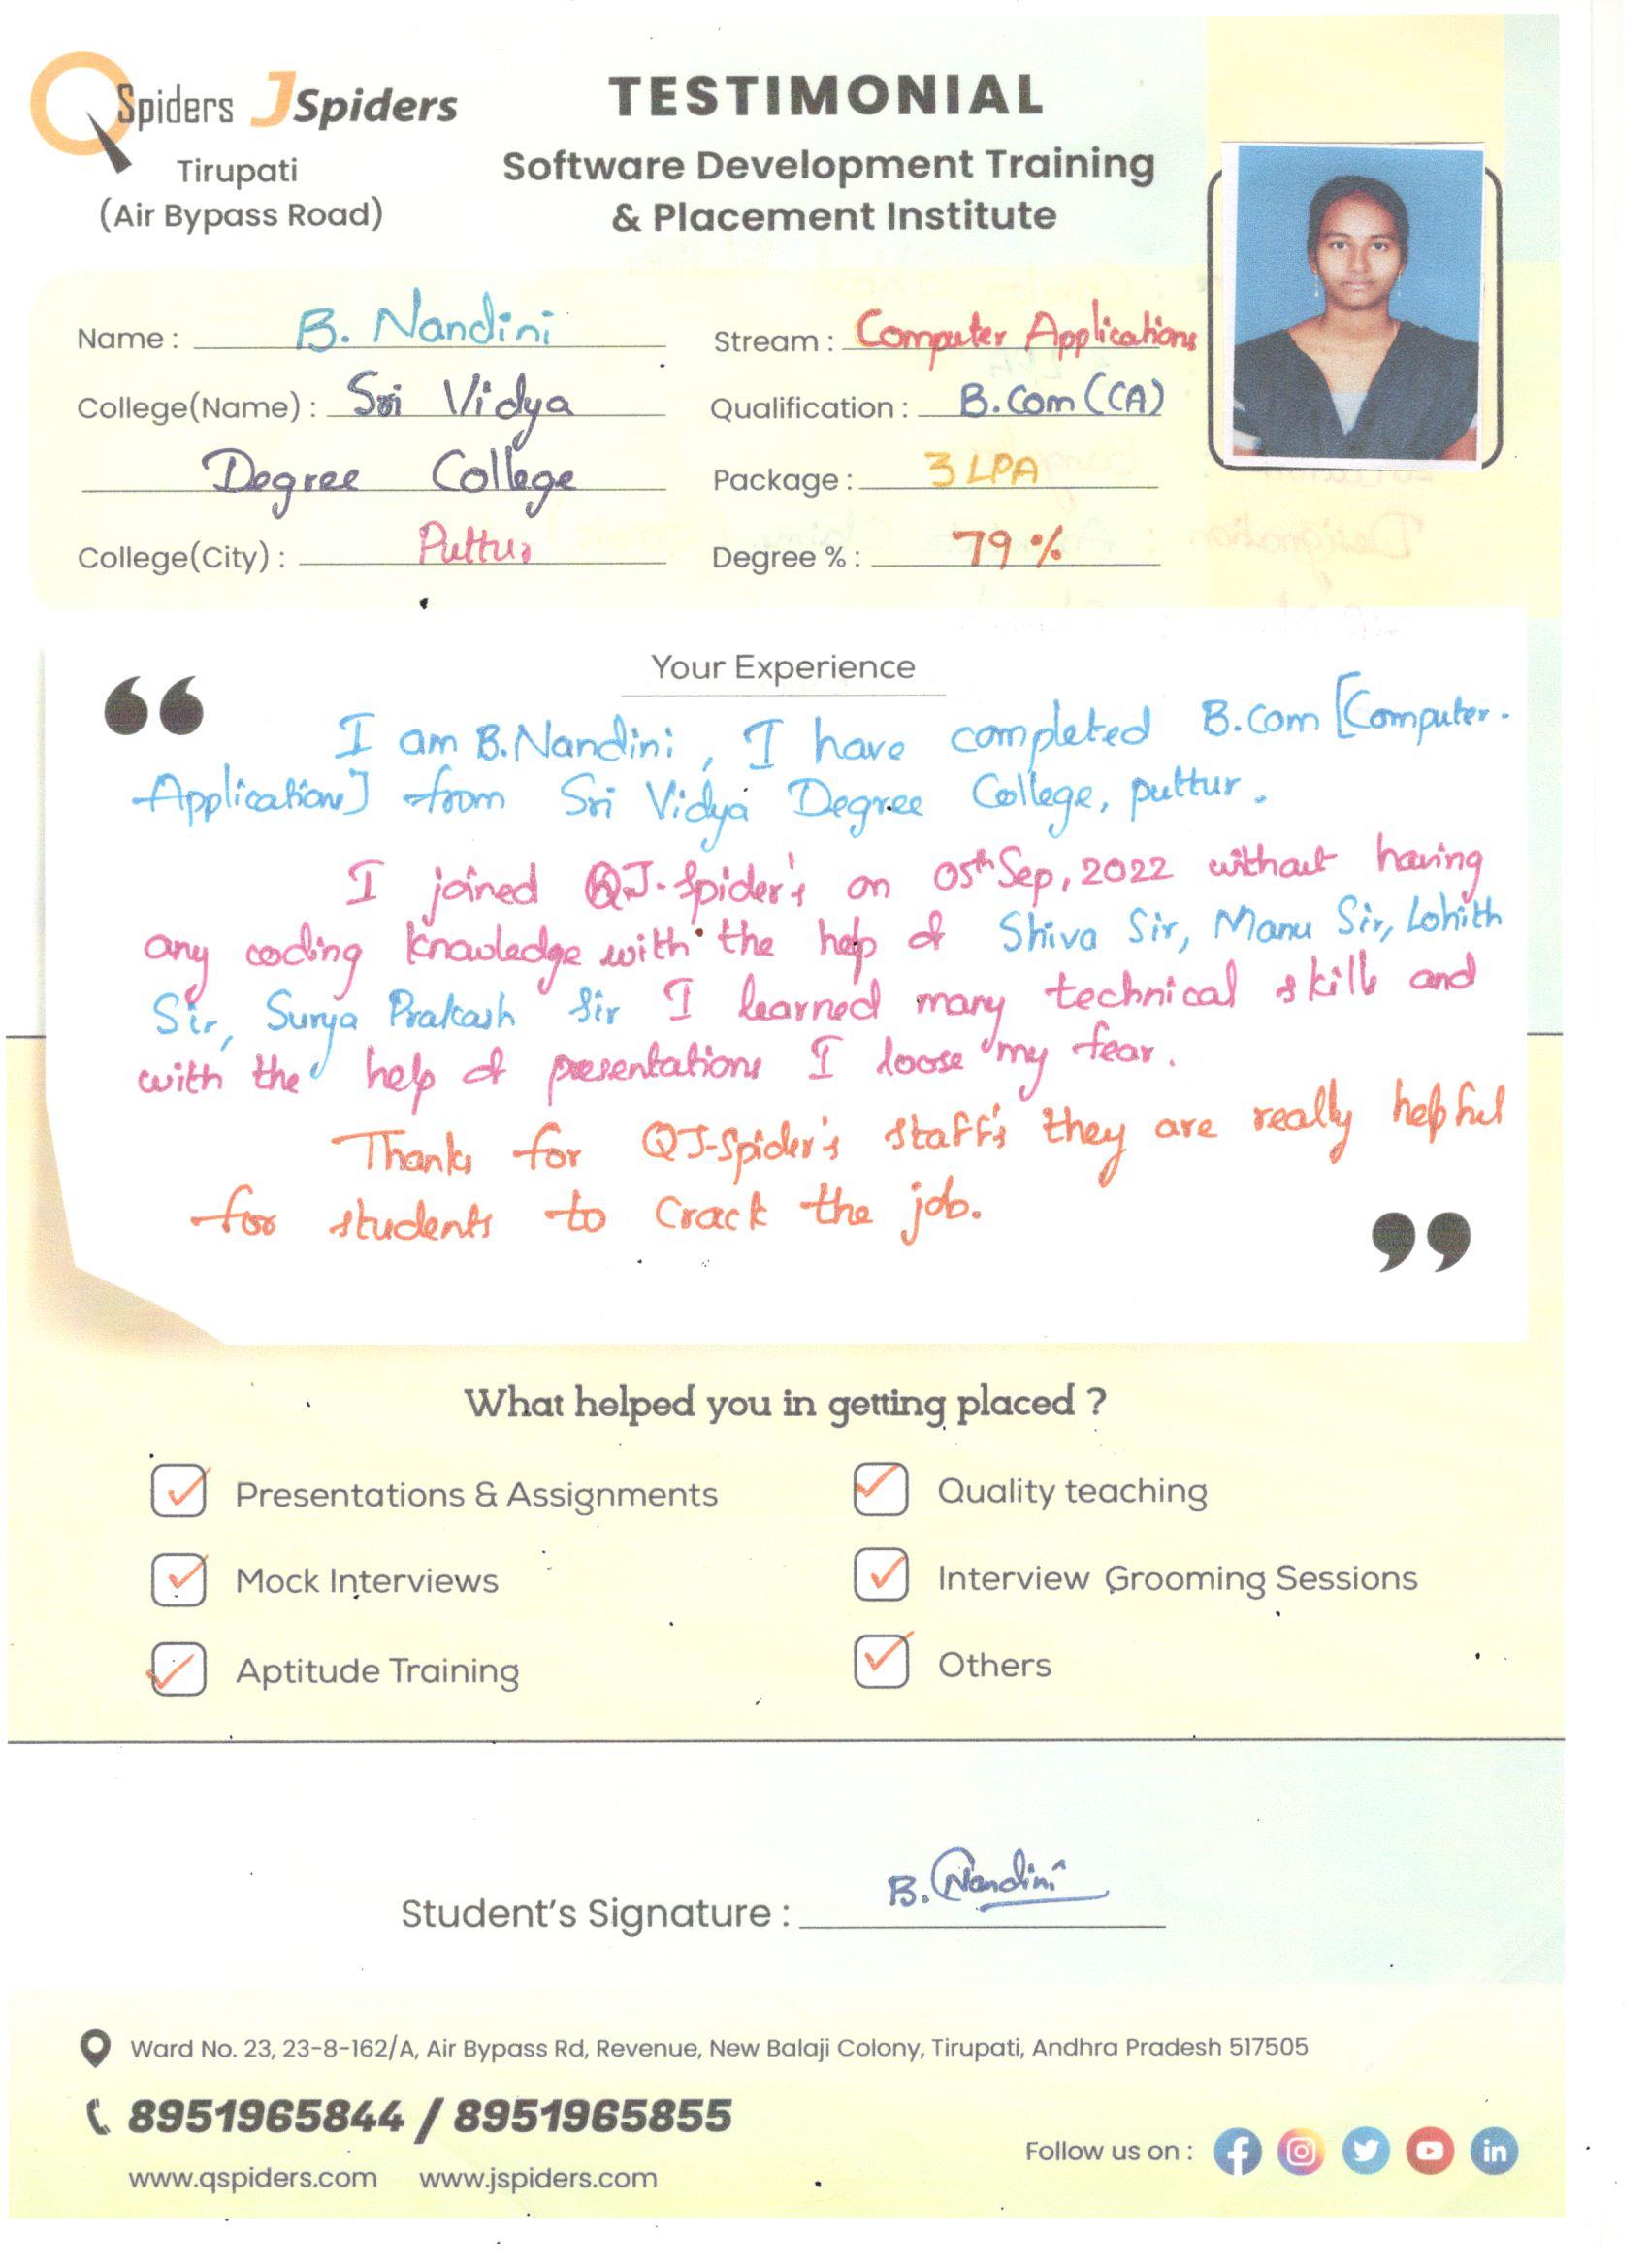 QSpiders JSpiders
Tirupati
(Air Bypass Road)
TESTIMONIAL
Software Development Training
& Placement Institute
Name : B. Nandini
College(Name) : Sri Vidya
Degree College
College(City) : Puttur
Stream : Computer Applications
Qualification : B.Com (CA)
Package : 3 LPA
Degree % : 79%
Your Experience
I am B.Nandini, I have completed B.Com [Computer.
Applications] from Sri Vidya Degree College, puttur.
I joined QJ-Spider's on 05th Sep, 2022 without having
any coding knowledge with the help of Shiva Sir, Manu Sir, Lohith
Sir, Surya Prakash Sir I learned many technical skills and
with the help of presentations I loose my fear.
Thanks for QJ-Spider's staff's they are really helpful
for students to Crack the job.
What helped you in getting placed ?
Presentations & Assignments
Mock Interviews
Aptitude Training
Quality teaching
Interview Grooming Sessions
Others
Student's Signature : B. Nandini
Ward No. 23, 23-8-162/A, Air Bypass Rd, Revenue, New Balaji Colony, Tirupati, Andhra Pradesh 517505
8951965844 / 8951965855
www.qspiders.com www.jspiders.com
Follow us on :